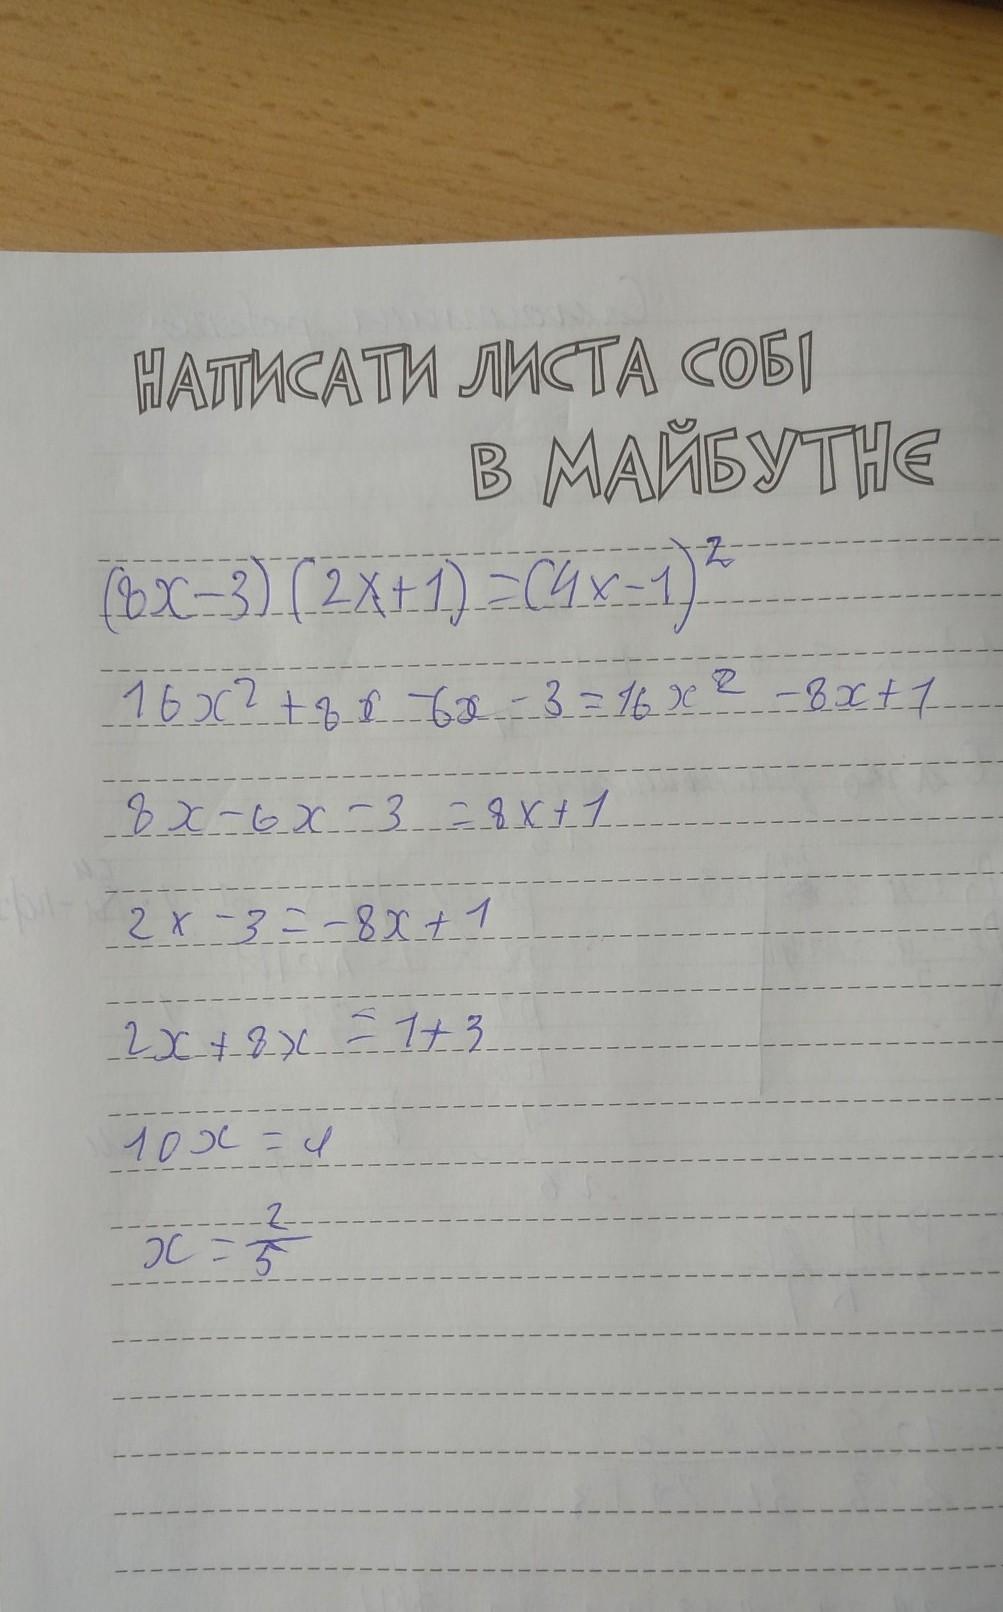 НАПИСАТИ ЛИСТА СОБІ
В МАЙБУТНЄ
(8x-3)(2x+1)=(4x-1)²
16x²+8x-6x-3=16x²-8x+1
8x-6x-3=8x+1
2x-3=-8x+1
2x+8x=1+3
10x=4
x=2/5